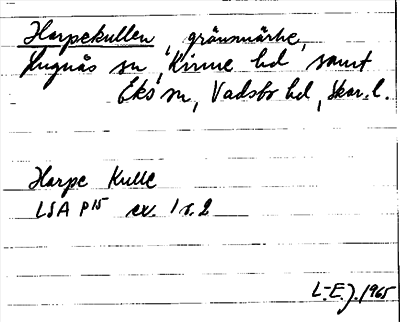 Harpekullen, gränsmärke,
Fugnås sn, Kinne hd samt
Eks sn, Vadsbo hd, Skar. l.
Harpe Kulle
LSA P15 ex. 1 s. 2
L-E. J. 1965